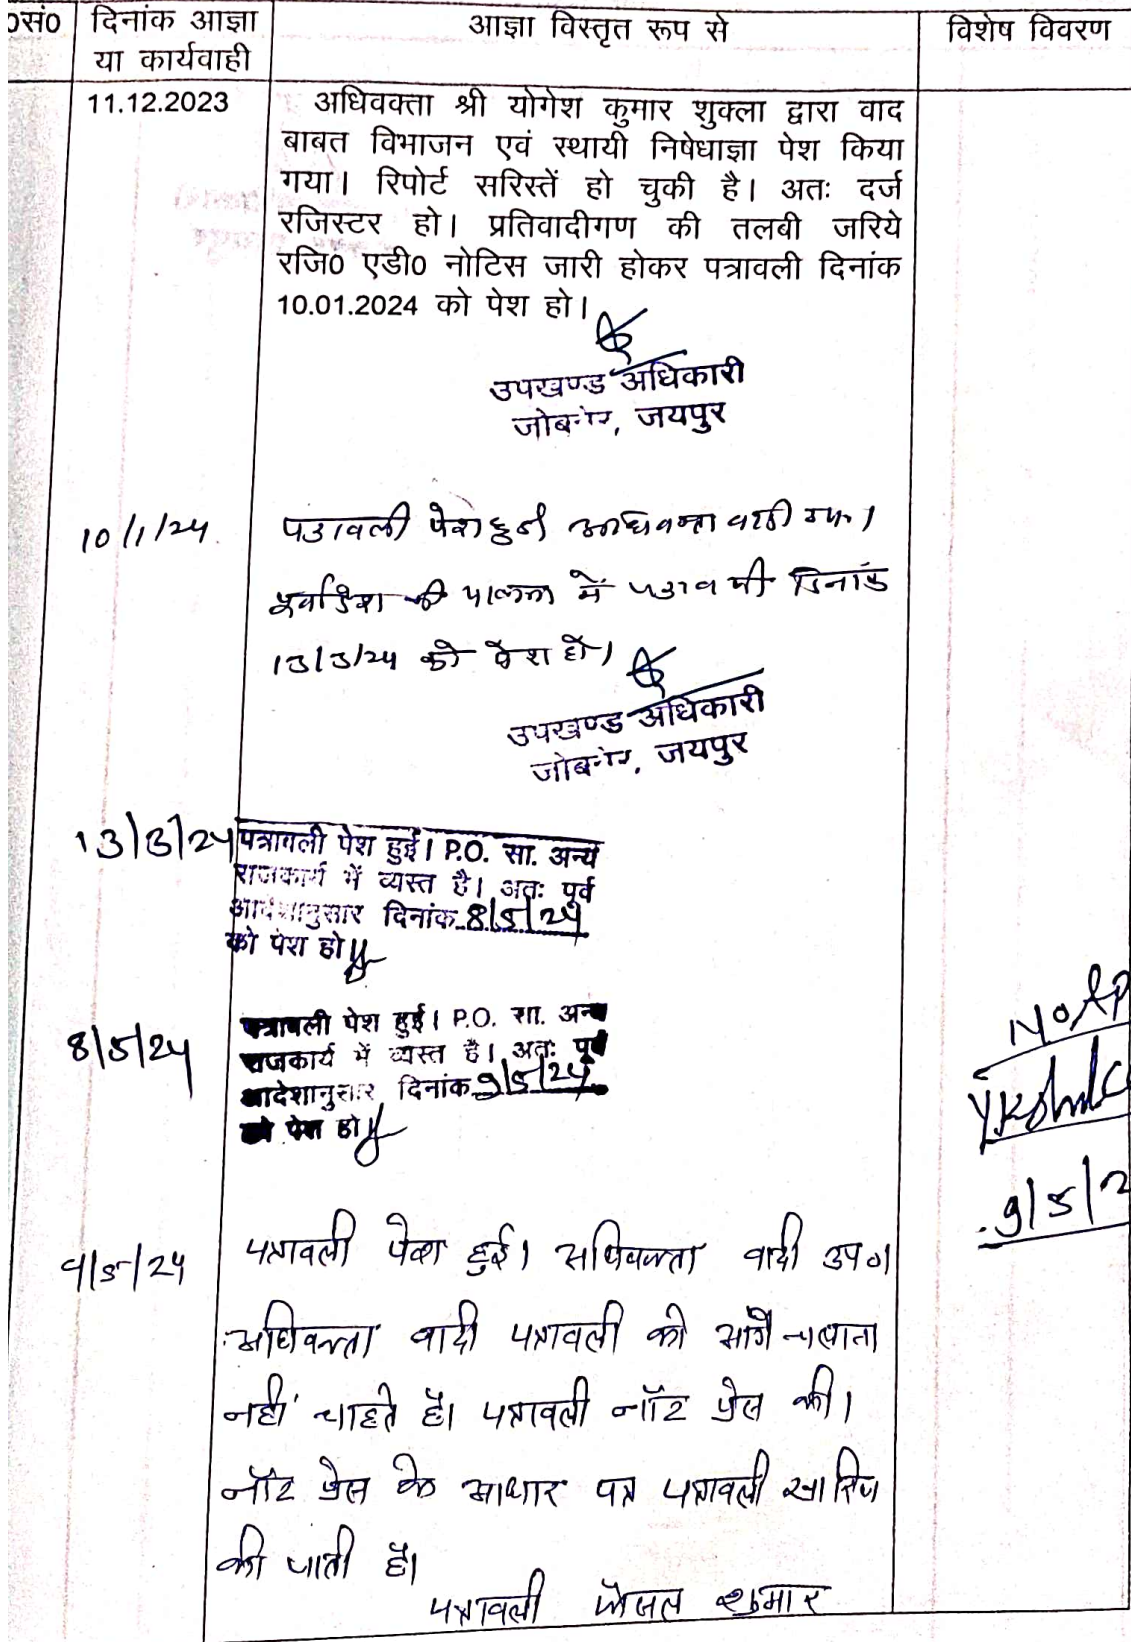 ०सं० दिनांक आज्ञा या कार्यवाही
आज्ञा विस्तृत रूप से
विशेष विवरण
11.12.2023
अधिवक्ता श्री योगेश कुमार शुक्ला द्वारा वाद
बाबत विभाजन एवं स्थायी निषेधाज्ञा पेश किया
गया। रिपोर्ट सरिस्तें हो चुकी है। अतः दर्ज
रजिस्टर हो। प्रतिवादीगण की तलबी जरिये
रजि0 एडी0 नोटिस जारी होकर पत्रावली दिनांक
10.01.2024 को पेश हो।
उपखण्ड अधिकारी
जोबनेर, जयपुर
10/1/24
पत्रावली पेश हुई अधिवक्ता वादी उप।
पूर्वादेश की पालना में पत्रावली दिनांक
13/3/24 को पेश हो।
उपखण्ड अधिकारी
जोबनेर, जयपुर
13/3/24
पत्रावली पेश हुई। P.O. सा. अन्य
राजकार्य में व्यस्त है। अतः पूर्व
आदेशानुसार दिनांक 8/5/24
को पेश हो
8/5/24
पत्रावली पेश हुई। P.O. सा. अन्य
राजकार्य में व्यस्त है। अतः पूर्व
आदेशानुसार दिनांक 9/5/24
को पेश हो
9/5/24
पत्रावली पेश हुई। अधिवक्ता वादी उप०।
अधिवक्ता वादी पत्रावली को आगे चलाना
नहीं चाहते है। पत्रावली नॉट प्रेस की।
नॉट प्रेस के आधार पर पत्रावली खारिज
की जाती है।
पत्रावली फैसल शुमार
9/5/2